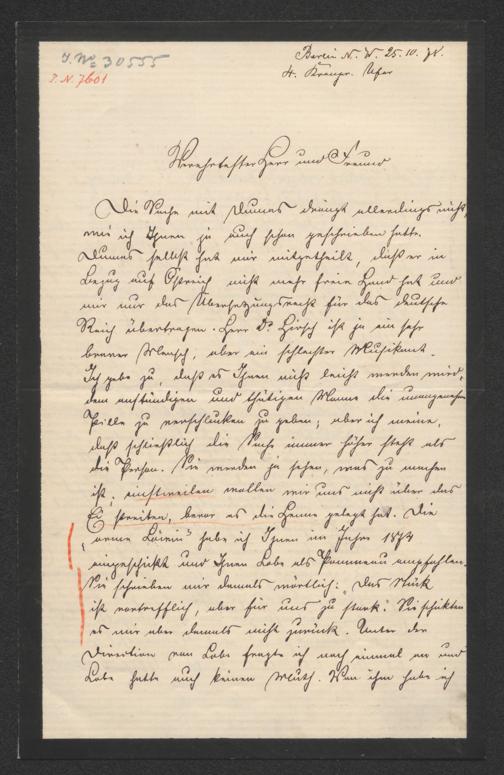 J. No 30555
J. N. 7601
Berlin N. W. 25.10.78.
4. Kronpr. Ufer
Verehrtester Herr und Freund
Die Sache mit Dumas drängt allerdings nicht,
wie ich Ihnen ja auch schon geschrieben hatte.
Dumas selbst hat mir mitgetheilt, daß er in
Bezug auf Östreich nicht mehr freie Hand hat und
mir nur das Übersetzungsrecht für das deutsche
Reich übertragen. Herr Dr Hirsch ist ja ein sehr
braver Mensch, aber ein schlechter Musikant.
Ich gebe zu, daß es Ihnen nicht leicht werden wird,
dem anständigen und thätigen Manne die unangenehme
Pille zu verschlucken zu geben; aber ich meine,
daß schließlich die Sache immer höher steht als
die Person. Sie werden ja sehen, was zu machen
ist, einstweilen wollen wir uns nicht über das
Ei streiten, bevor es die Henne gelegt hat. Die
"arme Löwin" habe ich Ihnen im Jahre 1874
eingeschickt und Ihnen Lobe als Pommeau empfohlen.
Sie schrieben mir damals wörtlich: "Das Stück
ist vortrefflich, aber für uns zu stark". Sie schickten
es mir aber damals nicht zurück. Unter der
Direction von Lobe fragte ich noch einmal an und
Lobe hatte auch keinen Muth. Von ihm habe ich